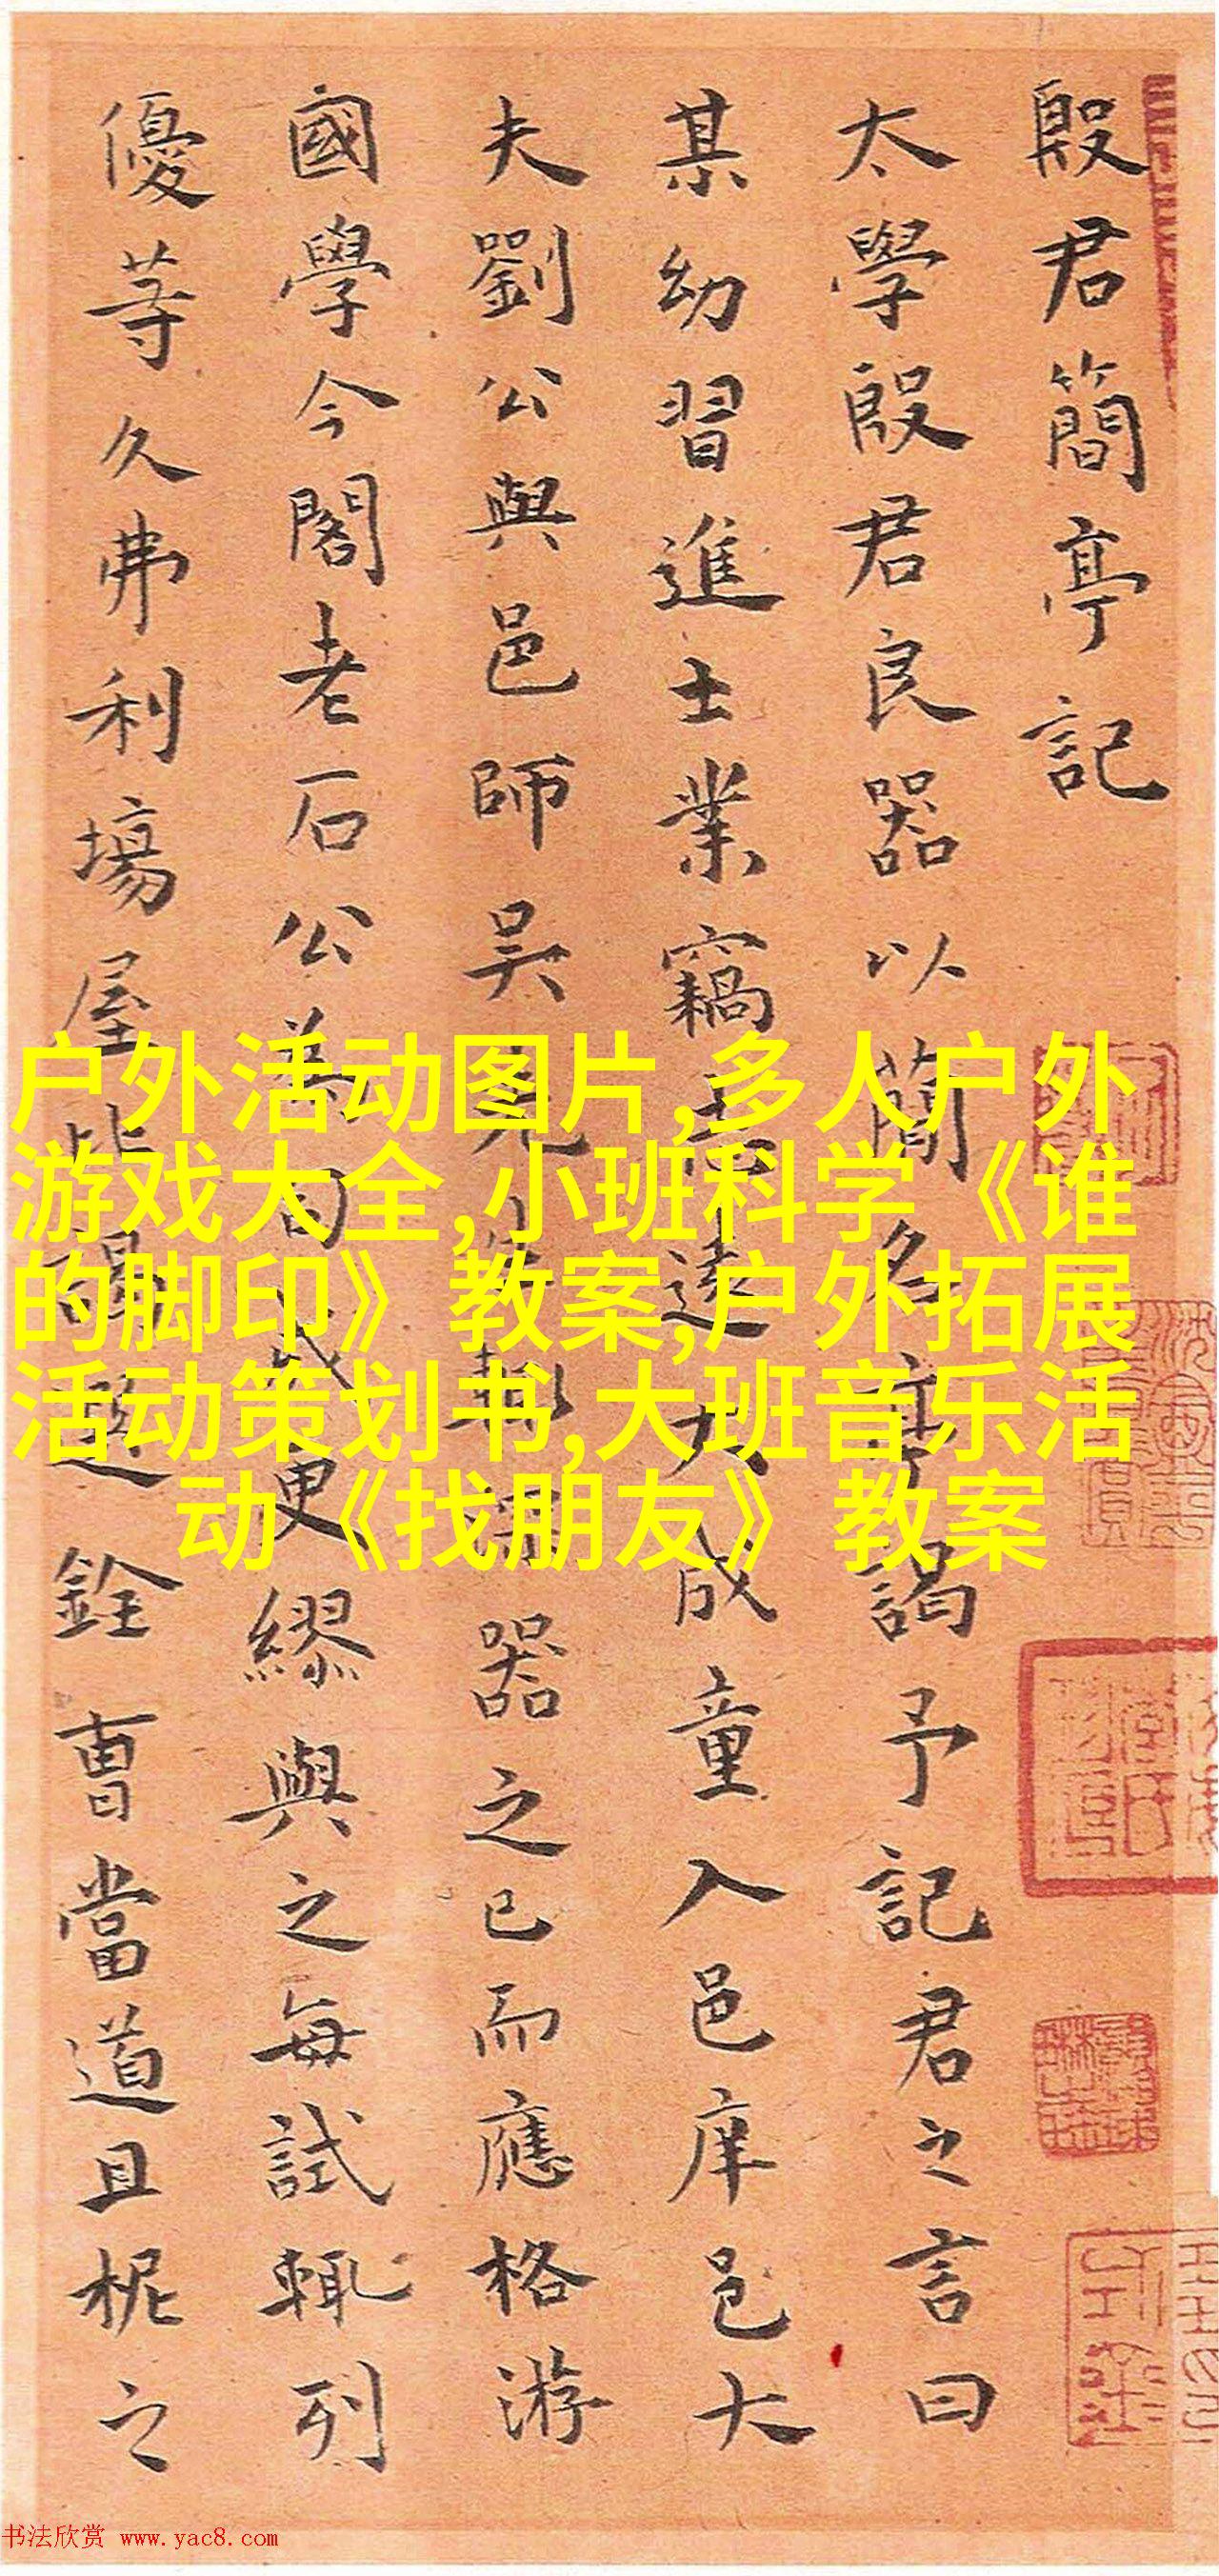 殷君簡亭記
太學殷君良器以簡名亭謁予記君之言曰
某幼習進士業竊志遠大成童入邑庠邑大
夫劉公與邑師吳先器之已而應格游
國學今閣老石公為更繆與之每試輒列
優等久弗利場屋謁選銓曹當道且柅之
户外活动图片,多人户外
游戏大全,小班科学《谁
的脚印》教案,户外拓展
活动策划书,大班音乐活
动《找朋友》教案
书法欣赏 www.yac8.com